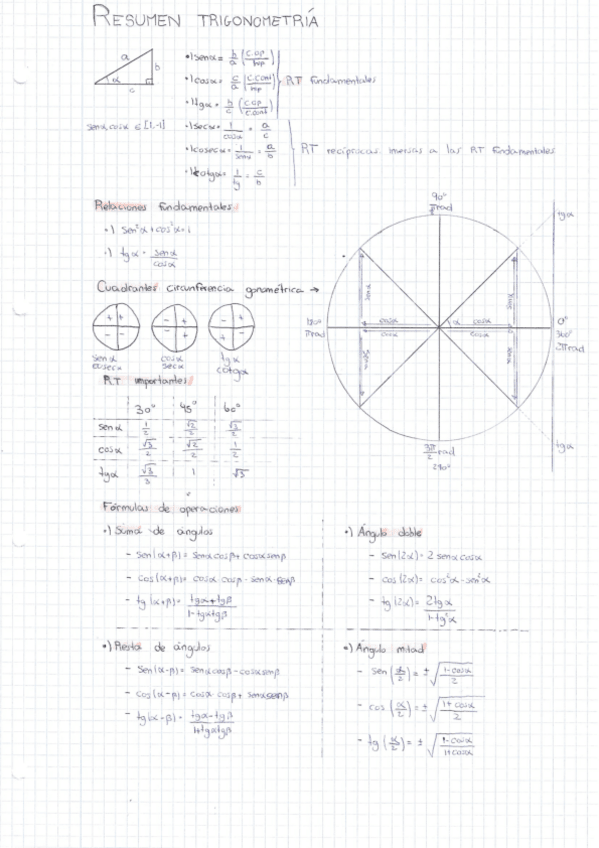 RESUMEN TRIGONOMETRÍA
a
b
α
c
•) senα = b/a (C.OP/hip)
•) cosα = c/a (C.CONT/hip)
•) tgα = b/c (C.OP/C.CONT)
RT fundamentales
senα, cosα ∈ [1,-1]
•) secα = 1/cosα = a/c
•) cosecα = 1/senα = a/b
•) cotgα = 1/tg = c/b
RT recíprocas inversas a las RT fundamentales
Relaciones fundamentales
•) sen²α + cos²α = 1
•) tgα = senα/cosα
Cuadrantes circunferencia goniométrica →
+ +
- -
- +
- +
- +
+ -
senα
cosecα
cosα
secα
tgα
cotgα
90°
π/2 rad
tgα
senα
senα
cosα
α
cosα
cosα
cosα
senα
senα
180°
π rad
0°
360°
2π rad
3π/2 rad
270°
tgα
RT importantes
30° 45° 60°
senα 1/2 √2/2 √3/2
cosα √3/2 √2/2 1/2
tgα √3/3 1 √3
Fórmulas de operaciones
•) Suma de ángulos
- sen(α+β) = senα cosβ + cosα senβ
- cos(α+β) = cosα cosβ - senα senβ
- tg(α+β) = tgα + tgβ / 1 - tgα tgβ
•) Ángulo doble
- sen(2α) = 2 senα cosα
- cos(2α) = cos²α - sen²α
- tg(2α) = 2tgα / 1 - tg²α
•) Resta de ángulos
- sen(α-β) = senα cosβ - cosα senβ
- cos(α-β) = cosα cosβ + senα senβ
- tg(α-β) = tgα - tgβ / 1 + tgα tgβ
•) Ángulo mitad
- sen(α/2) = ± √(1 - cosα / 2)
- cos(α/2) = ± √(1 + cosα / 2)
- tg(α/2) = ± √(1 - cosα / 1 + cosα)